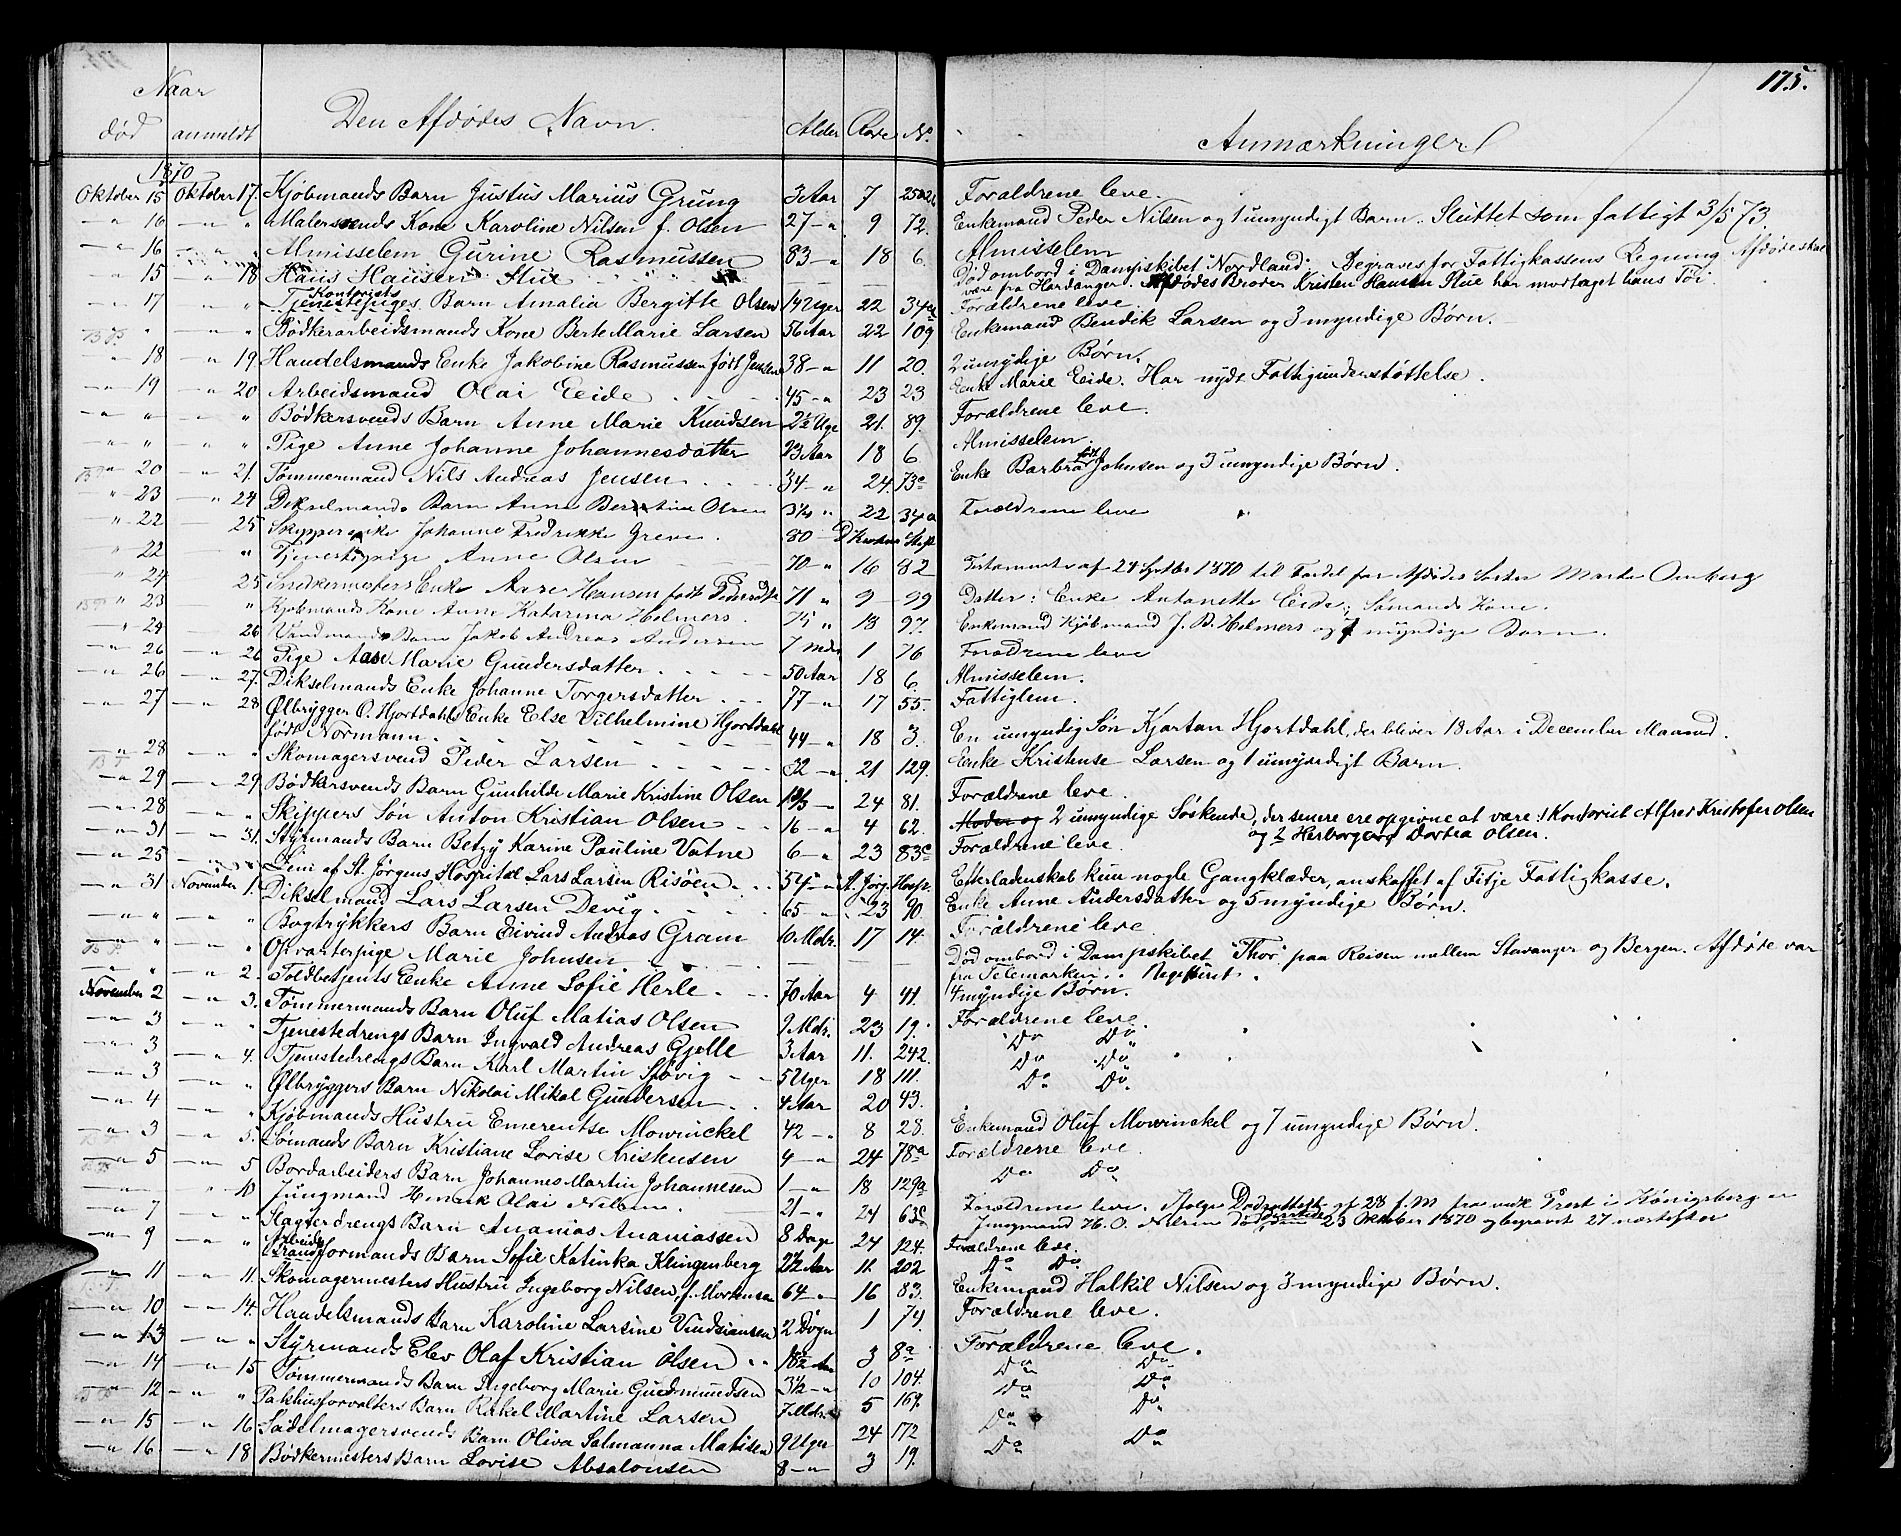 175.
Naar
død anmeldt Den Afdødes Navn. Alder Rode No. Anmærkninger
1870
Oktober 15 Oktober 17. Kjøbmands Barn Justus Marius Grung 3 Aar 7 Forældrene leve.
16 Malersvends Kone Karoline Nilsen f. Olsen 27 9 72. Enkemand Peder Nilsen og 1 umyndigt Barn. Sluttet som fattigt 3/5 73
16 Almisselem Gurine Rasmussen 83 18 6. Almisselem
15 18 Hans Hansen Flue Død ombord i Dampskibet "Nordland". Begraves for Fattigkassens Regning. Afdøde skal
være fra Hardanger. Afdødes Broder Kristen Hansen Flue har modtaget hans Töi.
Kontorists
17 Tjenestepiges Barn Amalia Bergitte Olsen 14 Uger 22 34a Forældrene leve.
Bødkerarbeidsmands Kone Berte Marie Larsen 56 Aar 22 109 Enkemand Bendik Larsen og 3 myndige Børn.
18 19 Handelsmands Enke Jakobine Rasmussen født Jensen 38 11 20. 2 umydige Børn.
19 20 Arbeidsmand Olai Eide 45 23 23 Enke Marie Eide. Har nydt Fattigunderstøttelse.
Bødkersvends Barn Anne Marie Knudsen 2½ Uge 21. 89. Forældrene leve.
Pige Anne Johanne Johannesdatter 23 Aar 18 6 Almisselem.
20 21. Tømmermand Nils Andreas Jensen 34 24. 73c Enke Barbra født Johnsen og 3 umyndige Børn.
23 24 Dikselmands Barn Anne Berntine Olsen 3¾ 22 34a Forældrene leve
22 25 Skipperenke Johanne Fredrikke Greve. 80
22 Tjenestepige Anne Olsen 70 16 82 Testamente af 24 Septbr 1870 til Fordel for Afdødes Søster Marte Omberg
24 25 Snedkermesters Enke Aase Hansen født Pedersdtr 71 9 99 Datter: Enke Antonette Eide, Sømands Kone.
23 Kjøbmands Kone Anne Katarina Helmers. 75 13 97. Enkemand Kjøbmand J. B. Helmers og 7 myndige Børn.
24 26 Vandmands Barn Jakob Andreas Andersen 7 Mdr 1 76 Forældrene leve
26 26 Pige Aase Marie Gundersdatter 50 Aar 18 6. Almisselem.
26 27. Dikselmands Enke Johanne Torgersdatter 77 17 55. Fattiglem.
27 28 Ølbrygger O. Hjortdahls Enke Else Vilhelmine Hjortdahl
født Normann. 44 18 3. En umyndig Søn Kjartan Hjortdahl, der bliver 18 Aar i December Maaned.
28 Skomagersvend Peder Larsen 32 21 129. Enke Kristense Larsen og 1 umyndigt Barn.
29 29 Bødkersvends Barn Gunhilde Marie Kristine Olsen 24 81. Forældrene leve.
28 Skippers Søn Anton Kristian Olsen 16 4 62. Moder og 2 umyndige Søskende, der senere ere opgivne at være: 1 Kontorist Alfred Kristofer Olsen
og 2 Dortea Olsen.
31 31. Stÿrmands Barn Betzy Karine Pauline Vatne 6 23 83c Forældrene leve.
25 Lem af St. Jørgens Hospital Lars Larsen Risöen 54 St. Jörg. Hosp. Efterladenskab kun nogle Gangklæder, anskaffet af Fitje Fattigkasse.
31 November 1. Dikselmand Lars Larsen Devig 65 23 90. Enke Anne Andersdatter og 5 myndige Børn.
Bogtrykkers Barn Eivind Andreas Gram 10 Mdr. 17 14. Forældrene leve.
Opvarterpige Marie Johnsen Død ombord i Dampskibet "Thor" paa Reisen mellem Stavanger og Bergen. Afdøde var
fra Telemarken.
2. Toldbetjents Enke Anne Sofie Herle 70 Aar 4 41. 4 myndige Børn.
November 2 3. Tømmermands Barn Oluf Matias Olsen 9 Mdr. 23 19. Forældrene leve.
3 Tjenestedrengs Barn Ingvald Andreas Gjelle 3 Aar 11. 242. Do Do
3 4. Tjenestedrengs Barn Karl Martin Støvig 5 Uger 18 111. Do Do
3 Ølbryggers Barn Nikolai Mikal Gundersen 4 Aar 20 43. Do Do
4 Kjøbmands Hustru Emerentse Mowinckel 42 8 28. Enkemand Oluf Mowinckel og 7 umyndige Børn.
3 5. Sømands Barn Kristiane Lovise Kristensen 4 24 78a Forældrene leve.
5 5 Bordarbeiders Barn Johannes Martin Johannesen 1 18 129a Do Do
10 Jungmand Henrik Olai Nilsen. 21 24 63c Forældrene leve. Ifølge Dødsattest af 28 f. M. fra Prest i Königsberg er
Jungmand H. O. Nilsen død 23 Oktober 1870 og begravet 27 næstefter
7 Slagterdrengs Barn Ananias Ananiassen 8 Dage 24 124. Forældrene leve.
Arbeids
9 formands Barn Sofie Katinka Klingenberg 2½ Aar 11. 202 Do Do
11 11. Skomagermesters Hustru Ingeborg Nilsen f. Mortensen 64 16 83. Enkemand Halkil Nilsen og 3 myndige Børn.
10 14. Handelsmands Barn Karoline Larsine Vindsiansen 2 Døgn 1 74. Forældrene leve.
13 Styrmands Elev Olaf Kristian Olsen 18½ Aar 3 8a Forældrene leve.
14 15 Tømmermands Barn Ingeborg Marie Gudmundsen 3½ 10 104. Do Do
12 Pakhusforvalters Barn Rakel Martine Larsen 7 Mdr. 5 169. Do Do
15 16 Sadelmagersvends Barn Oliva Salmanna Matisen 9 Uger 24 172 Do Do
16 18 Bødkermesters Barn Lovise Absalonsen 8 3 19. Do Do